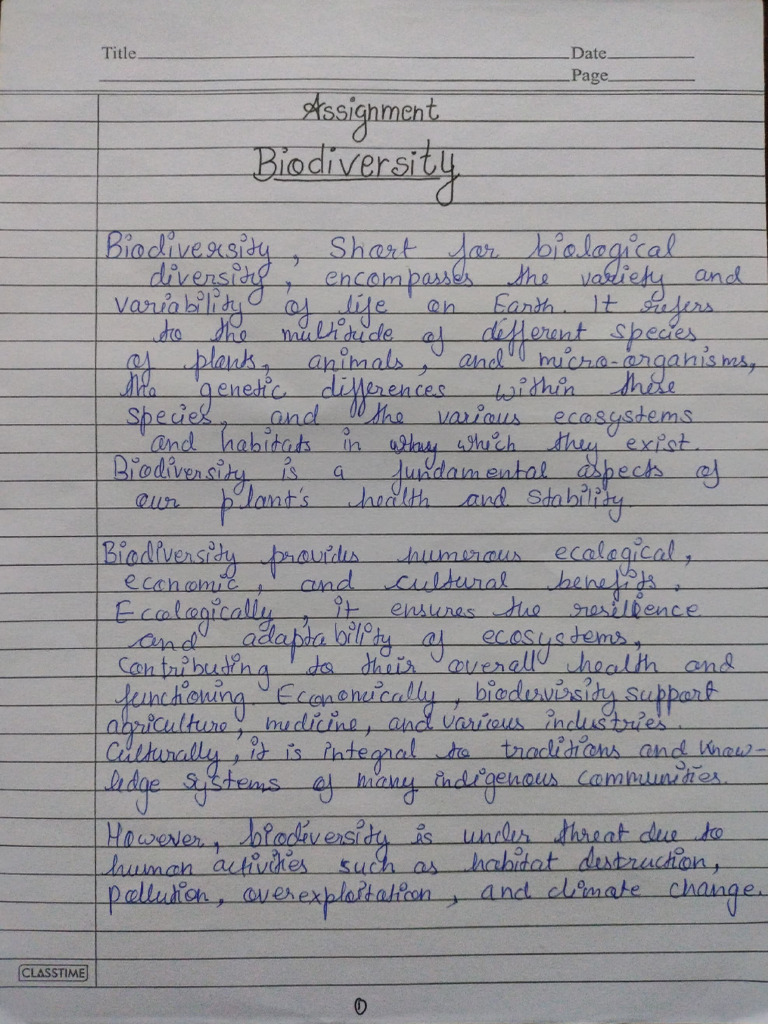 Title
Date
Page
Assignment
Biodiversity
Biodiversity, Short for biological
diversity, encompasses the variety and
variability of life on Earth. It refers
to the multitude of different species
of plants, animals, and micro-organisms,
the genetic differences within these
species, and the various ecosystems
and habitats in which they exist.
Biodiversity is a fundamental aspects of
our plant's health and stability.
Biodiversity provides numerous ecological,
economic, and cultural benefits.
Ecologically, it ensures the resilience
and adaptability of ecosystems,
contributing to their overall health and
functioning. Economically, bioderversity support
agriculture, medicine, and various industries.
Culturally, it is integral to traditions and know-
ledge systems of many indigenous communities.
However, biodiversity is under threat due to
human activities such as habitat destruction,
pollution, overexploitation, and climate change.
CLASSTIME
1